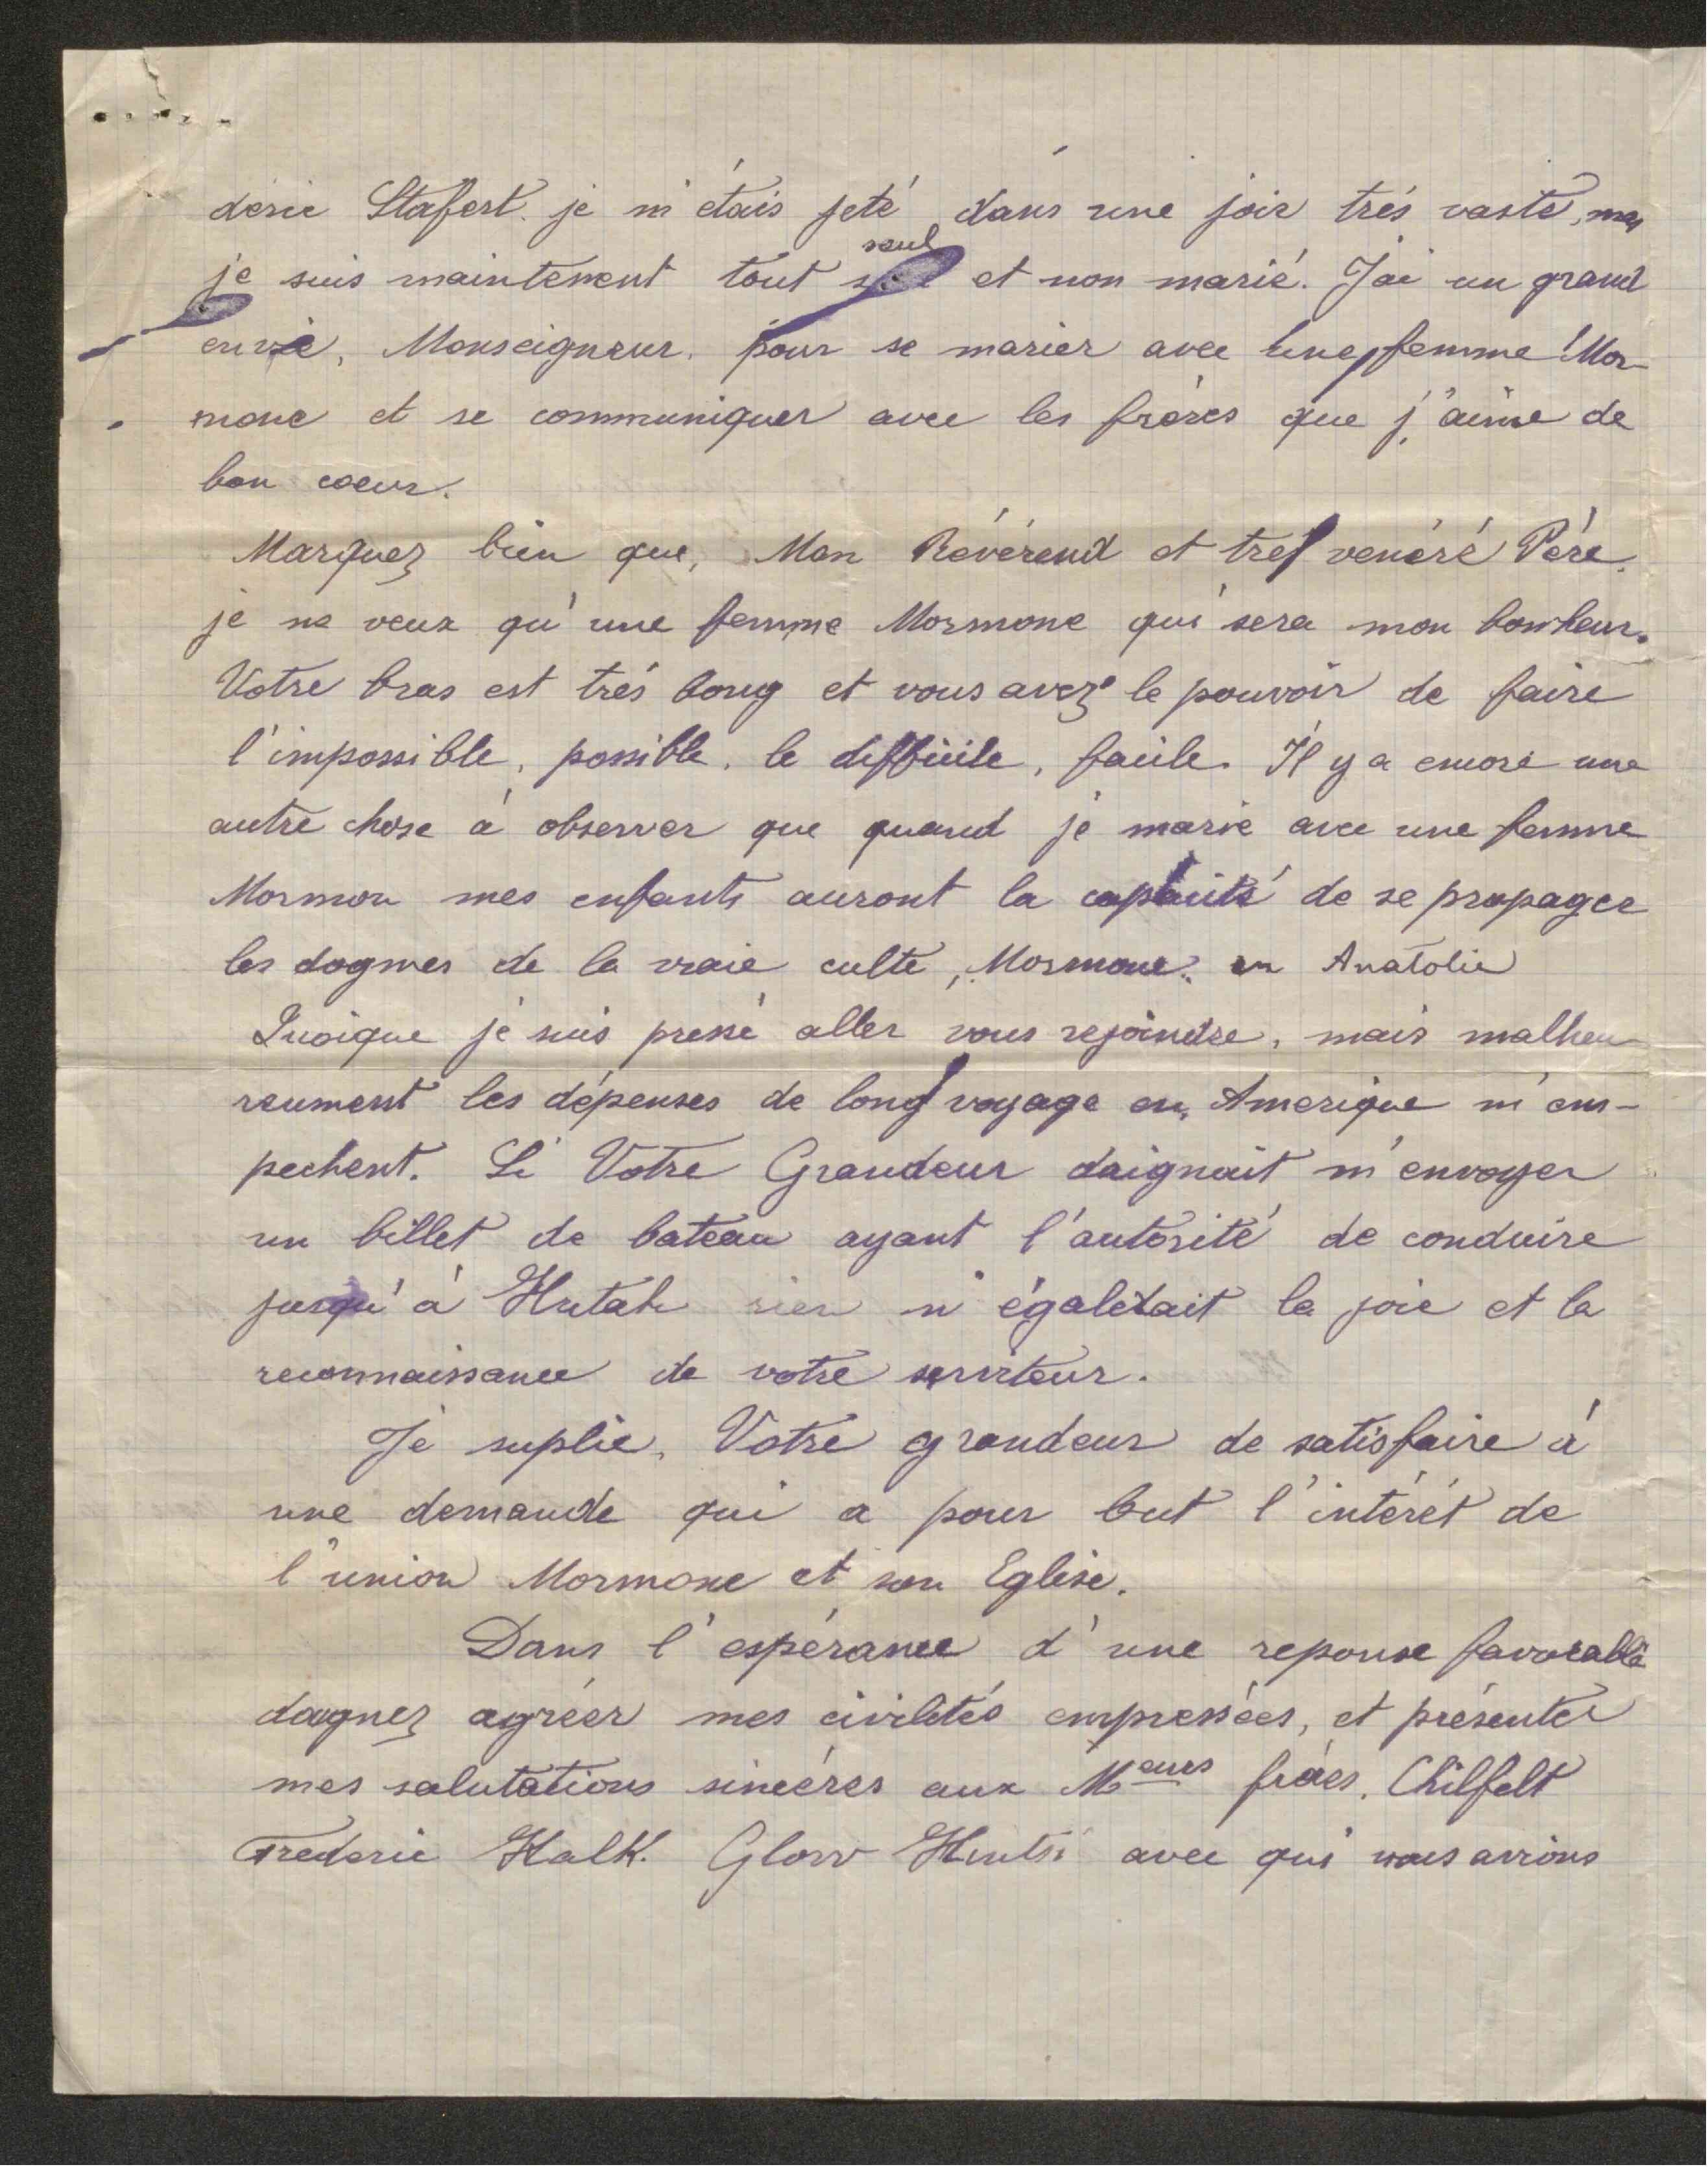 derie Stafert. je m'étais jeté dans une joie trés vaste, mes
je suis maintenent tout seul et non marié. J'ai un grand
envie, Monseigneur. pour se marier avec une femme Mor-
mone et se communiquer avec les fréres que j'aime de
bon coeur.
Marquez bien que, Mon Révérend et tres venéré Pére.
je ne veux qu'une femme Mormone qui sera mon bonheur.
Votre bras est trés long et vous avez le pouvoir de faire
l'impossible, possible, le difficile, facile. Il y a encore une
autre chose á observer que quand je marie avec une femme
Mormon mes enfants auront la capacité de se propager
les dogmes de la vraie culte, Mormone. en Anatolie
Quoique je suis pressé aller vous rejoindre, mais malheu-
reument les dépenses de long voyage en Amerique m'em-
pechent. Si Votre Grandeur daignait m'envoyer
un billet de bateau ayant l'autorité de conduire
jusqu'á Hutah rien n'égalerait la joie et la
reconnaissance de votre serviteur.
Je suplie, Votre grandeur de satisfaire á
une demande qui a pour but l'intérét de
l'union Mormone et son Eglise.
Dans l'espérance d'une reponse favorable
daignez agréer mes civilités empressées, et présenter
mes salutations sincéres aux Meurs fréres, Chilfelt
Frederic Halk. Glow Hintsi avec qui nous avrions